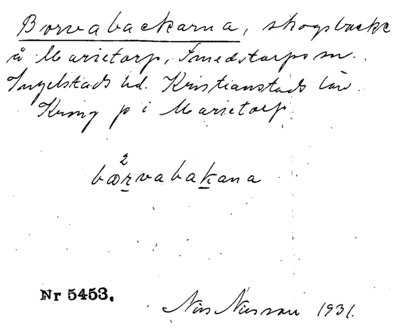 Borvabackarna, skogsbacke
å Marietorp, Smedstorps sn.
Ingelstads hd. Kristianstads län.
Kring p i Marietorp.
bœrvabakana
2
Nr 5453.
Nils Nilsson 1931.